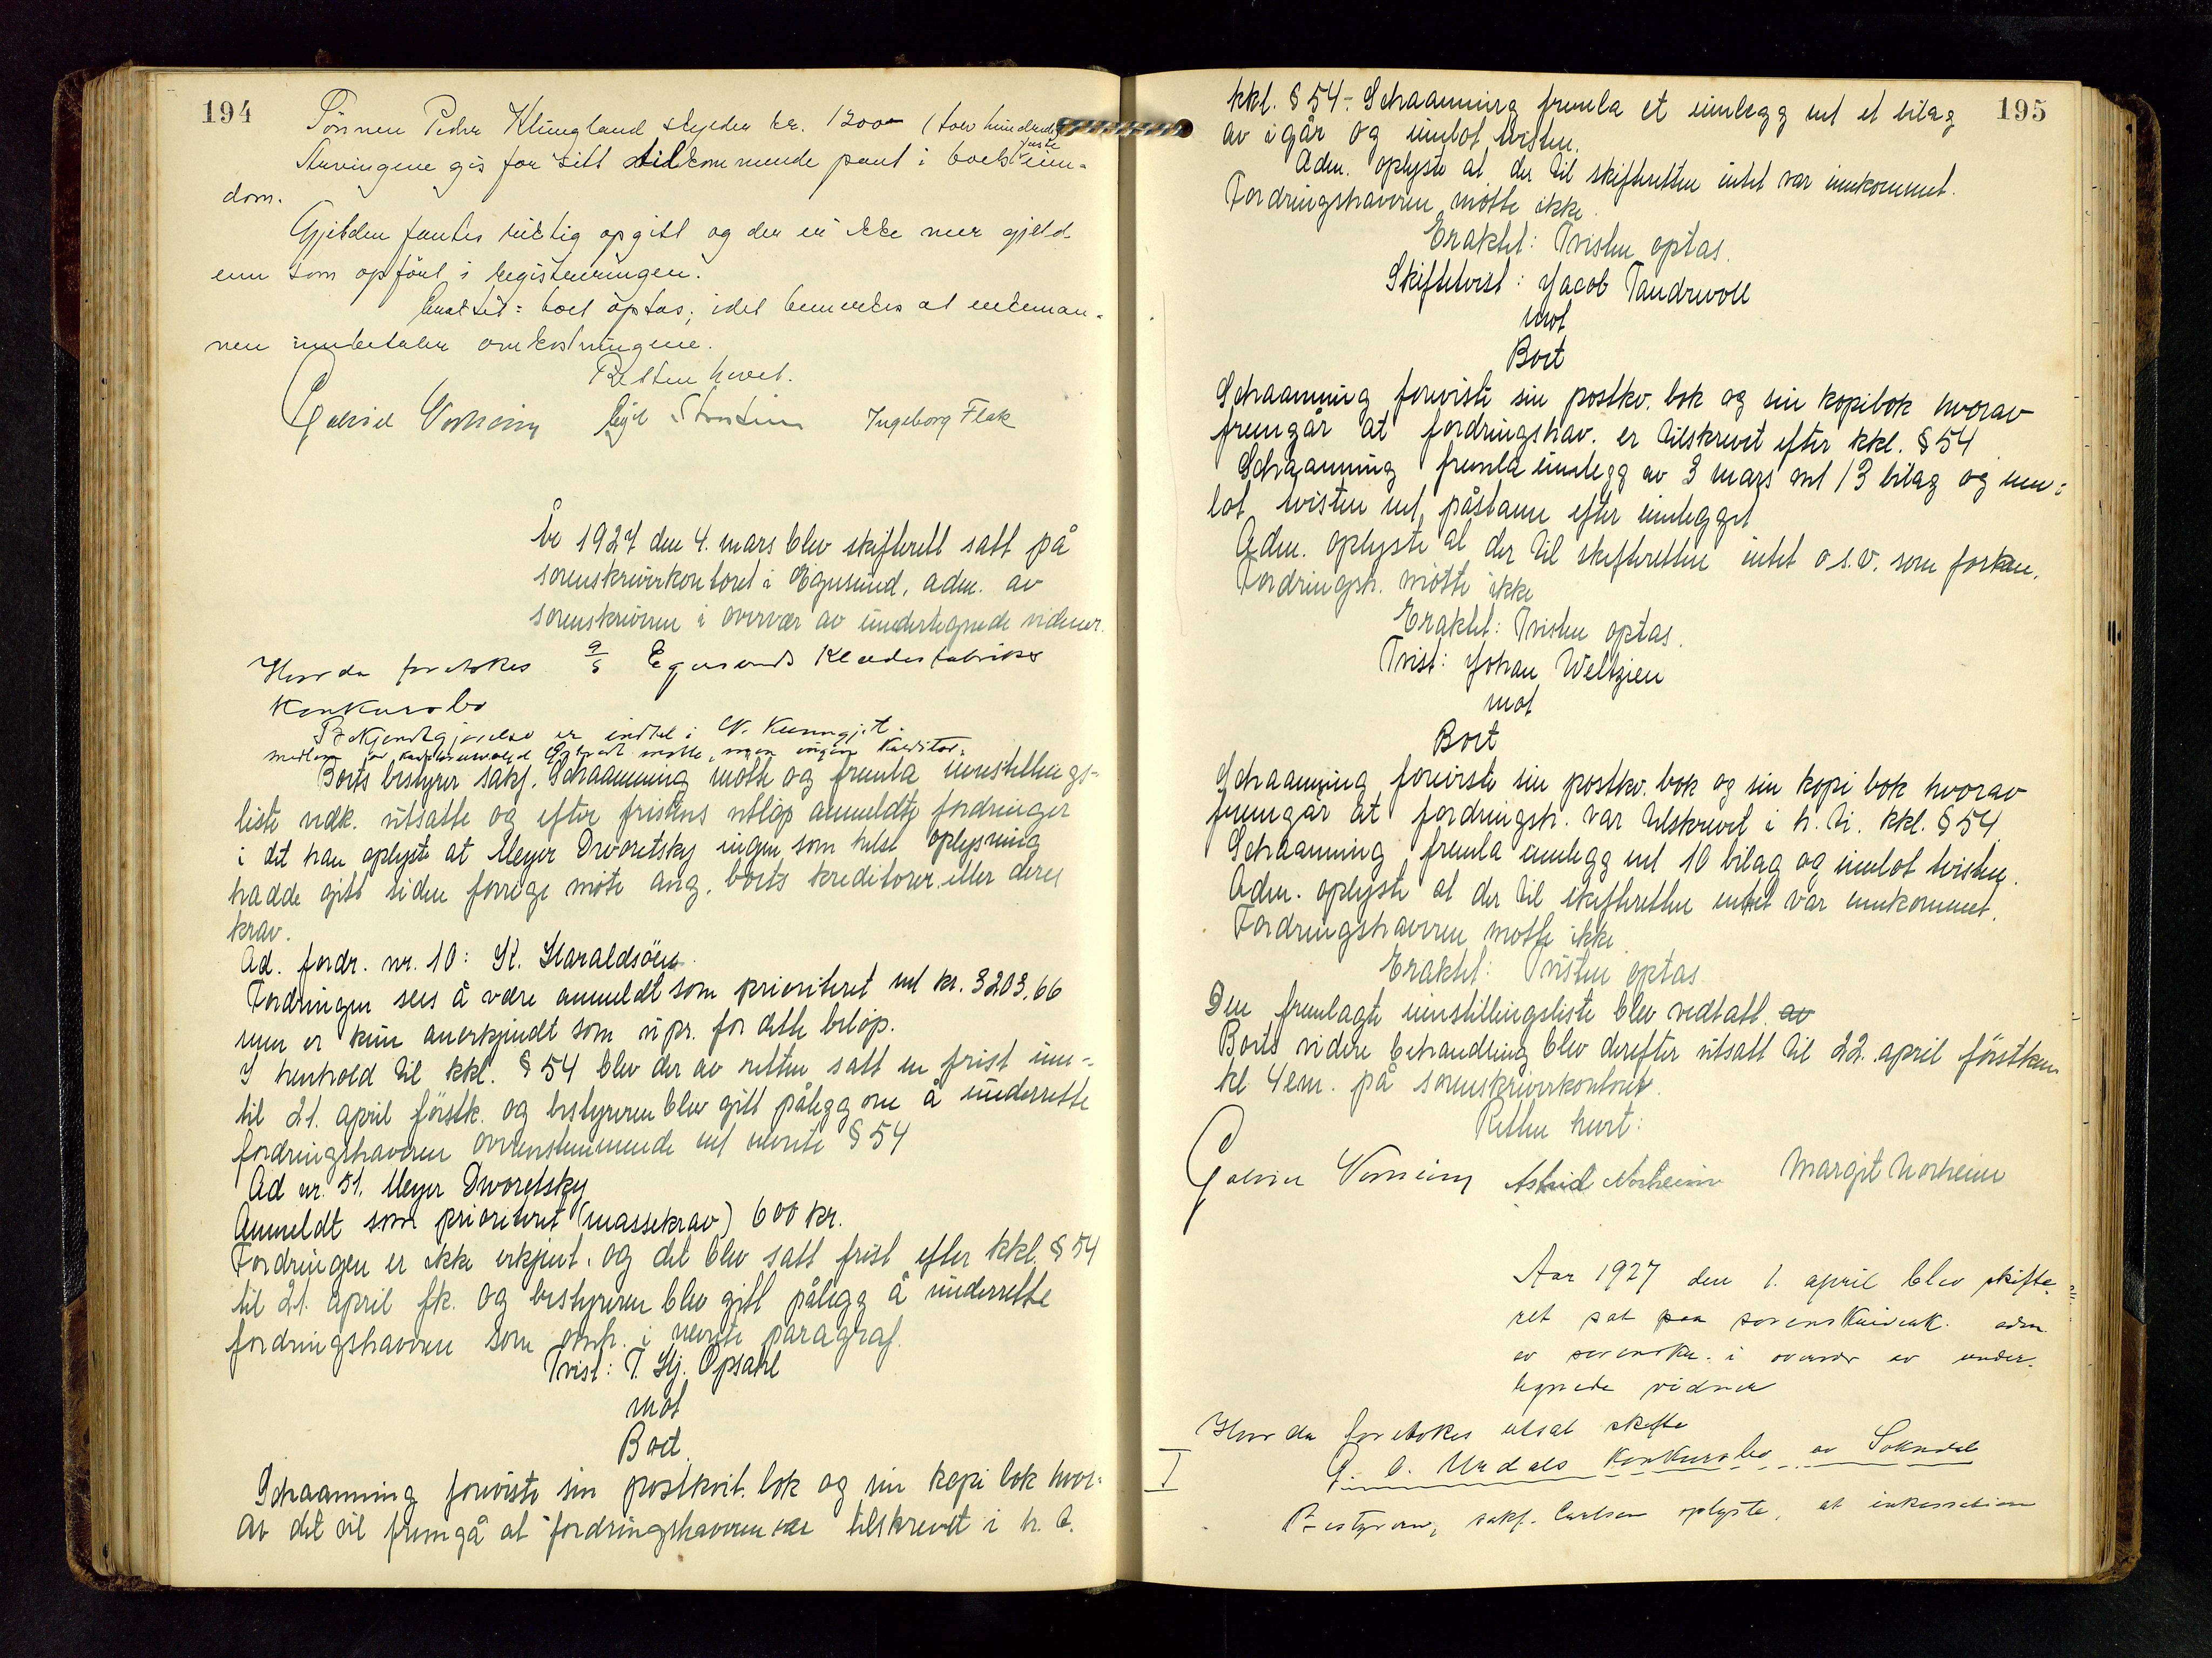 194
Sønnen Peder Klungland skylder kr. 1200 (tolv hundrede)
Arvingene gis for sitt tilkommende pant i boets faste eien-
dom.
Gjelden fantes riktig opgitt og der er ikke mer gjeld
enn som opført i registreringen.
Eraktet: boet optas; idet bemerkes at enkeman-
nen innbetaler omkostningene.
Retten hevet.
Gabriel Ingeborg Flek
År 1927 den 4. mars blev skifterett satt på
sorenskriverkontoret i Egersund, adm. av
sorenskriveren i overvær av undertegnede vidner.
Hvor da foretokes a/s Egersunds Klædesfabriks
Konkursbo
Bekjendtgjørelse er indtat i N. Kunngjøt.
medlem av møtte, men ingen kreditor.
Boets bestyrer sakf. Schaanning møtte og fremla innstillings-
liste vedk. utsatte og efter fristens utløp anmeldte fordringer
i det han oplyste at Meyer Dworetsky ingen som helst oplysning
hadde gitt siden forrige møte ang. boets kreditorer eller deres
krav.
Ad. fordr. nr. 10: K. Haraldsøen
Fordringen sees å være anmeldt som prioriteret med kr. 3203,66
men er kun anerkjendt som upr. for dette beløp.
I henhold til kkl. § 54 blev der av retten satt en frist inn-
til 21. april førstk. og bestyreren blev gitt pålegg om å underrette
fordringshaveren overenstemmende med nevnte § 54
Ad nr. 51. Meyer Dworetsky
Anmeldt som prioriteret (massekrav) 600 kr.
Fordringen er ikke erkjent. og det blev satt frist efter kkl. § 54
til 21. april fk. og bestyreren blev gitt pålegg å underrette
fordringshaveren som omh. i nevnte paragraf.
Tvist: T. Hj. Opsahl
mot
Boet.
Schaanning foreviste sin postkvit. bok og sin kopi bok hvor-
av det vil fremgå at fordringshaveren var tilskrevet i h. t.
195
kkl. § 54. Schaanning fremla et innlegg med et bilag
av igår og innlot tvisten.
Adm. oplyste at der til skifteretten intet var innkommet.
Fordringshaveren møtte ikke.
Eraktet: Tvisten optas.
Skiftetvist: Jacob Tandrevoll
mot
Boet
Schaanning foreviste sin postkv. bok og sin kopibok hvorav
fremgår at fordringshav. er tilskrevet efter kkl. § 54
Schaanning fremla innlegg av 3 mars med 13 bilag og inn-
lot tvisten med påstann efter innlegget
Adm. oplyste at der til skifteretten intet o.s.v. som forkan.
Fordringsh. møtte ikke
Eraktet: Tvisten optas.
Tvist: Johan Weltzien
mot
Boet
Schaanning foreviste sin postkv. bok og sin kopi bok hvorav
fremgår at fordringsh. var tilskrevet i h. ti. kkl. § 54
Schaanning fremla innlegg med 10 bilag og innlot tvisten.
Adm. oplyste at der til skifteretten intet var innkommet.
Fordringshaveren møtte ikke.
Eraktet: Tvisten optas
Den fremlagte innstillingsliste blev vedtatt. av
Boets videre behandling blev derefter utsatt til 22. april førstkom
kl 4 em. på sorenskriverkontoret.
Retten hevet:
Gabriel Astrid Norheim Margit Norheim
Aar 1927 den 1. april blev skifte-
ret sat paa sorenskriverk. adm
av sorenskr. i overvær av under-
tegnede vidner
Hvor da foretokes utsat skifte
I
konkursbo av Sokndal
Bestyreren, sakf. Carlsen oplyste, at inkassation